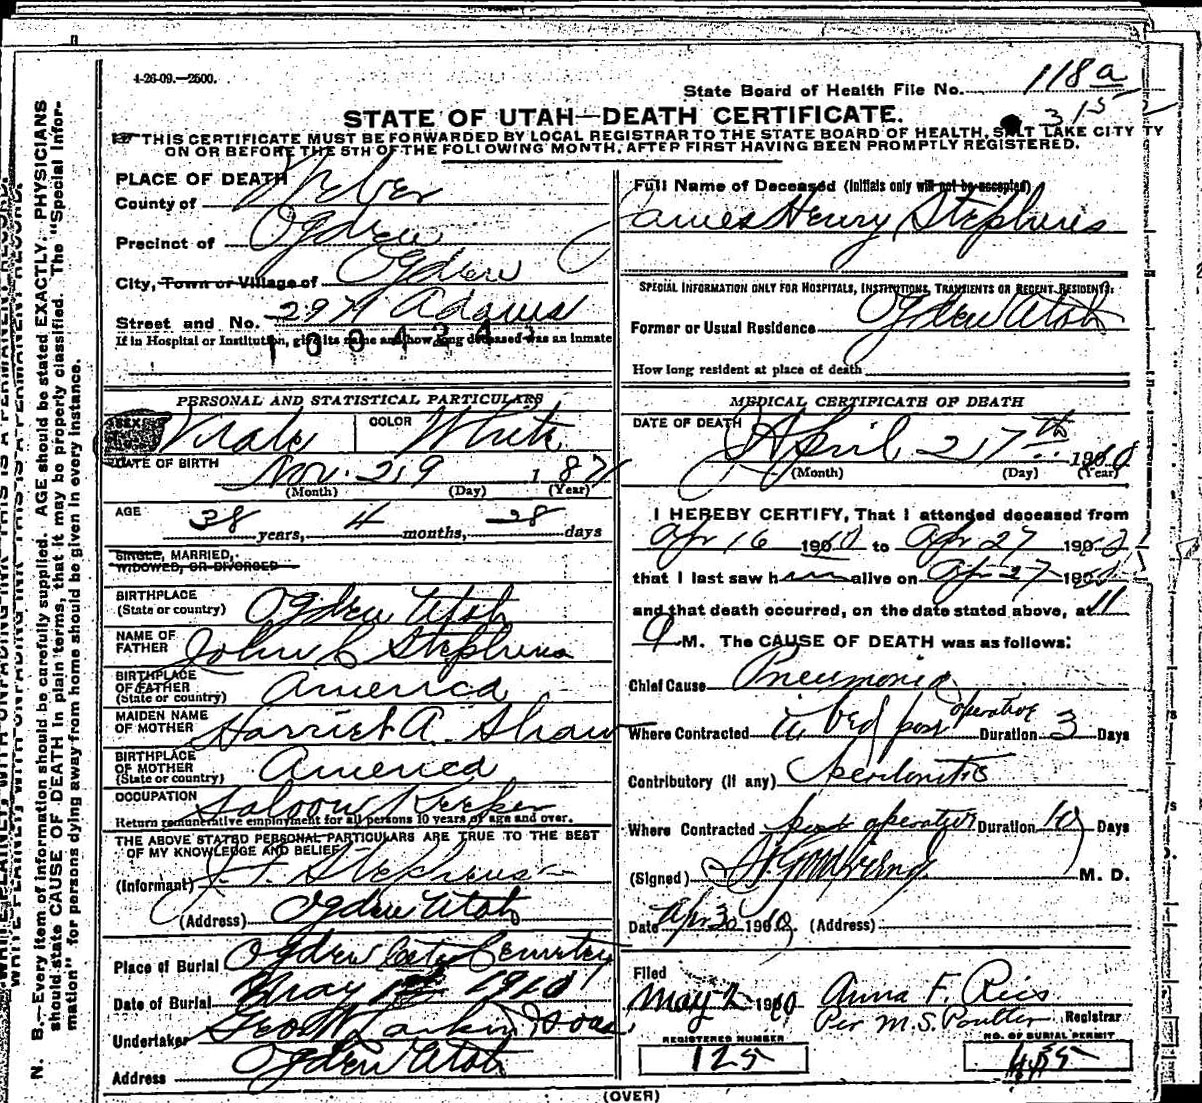 4-26-09.—2500.
State Board of Health File No. 118a
315
STATE OF UTAH—DEATH CERTIFICATE.
☞ THIS CERTIFICATE MUST BE FORWARDED BY LOCAL REGISTRAR TO THE STATE BOARD OF HEALTH, SALT LAKE CITY
ON OR BEFORE THE 5TH OF THE FOLLOWING MONTH, AFTER FIRST HAVING BEEN PROMPTLY REGISTERED.
N. B.—Every item of information should be carefully supplied. AGE should be stated EXACTLY. PHYSICIANS
should state CAUSE OF DEATH in plain terms, that it may be properly classified. The "Special Infor-
mation" for persons dying away from home should be given in every instance.
PLACE OF DEATH
County of Weber
Precinct of Ogden
City, Town or Village of Ogden
Street and No. 2971 Adams
If in Hospital or Institution, give its name and how long deceased was an inmate
PERSONAL AND STATISTICAL PARTICULARS
SEX Male COLOR White
DATE OF BIRTH Nov. 29 1871
(Month) (Day) (Year)
AGE 38 years, 4 months, 28 days
SINGLE, MARRIED,
WIDOWED, OR DIVORCED
BIRTHPLACE
(State or country) Ogden Utah
NAME OF
FATHER John C Stephens
BIRTHPLACE
OF FATHER
(State or country) America
MAIDEN NAME
OF MOTHER Harriet A. Shaw
BIRTHPLACE
OF MOTHER
(State or country) America
OCCUPATION Saloon Keeper
Return remunerative employment for all persons 10 years of age and over.
THE ABOVE STATED PERSONAL PARTICULARS ARE TRUE TO THE BEST
OF MY KNOWLEDGE AND BELIEF
(Informant) Stephens
(Address) Ogden Utah
Place of Burial Ogden City Cemetery
Date of Burial May 1st 1910
Undertaker Geo W Larkin & Sons
Address Ogden Utah
Full Name of Deceased (Initials only will not be accepted)
James Henry Stephens
SPECIAL INFORMATION ONLY FOR HOSPITALS, INSTITUTIONS, TRANSIENTS OR RECENT RESIDENTS.
Former or Usual Residence Ogden Utah
How long resident at place of death
MEDICAL CERTIFICATE OF DEATH
DATE OF DEATH April 27th 1910
(Month) (Day) (Year)
I HEREBY CERTIFY, That I attended deceased from
Apr 16 1910 to Apr 27 1910
that I last saw him alive on Apr 27 1910
and that death occurred, on the date stated above, at 11
M. The CAUSE OF DEATH was as follows:
Chief Cause Pneumonia
Where Contracted in bed post operative Duration 3 Days
Contributory (if any) Peritonitis
Where Contracted post operative Duration 10 Days
(Signed) M. D.
Date Apr 30 1910 (Address)
Filed
May 2 1910 Anna F. Ries
Per M.S. Poulter Registrar
REGISTERED NUMBER
125
NO. OF BURIAL PERMIT
(OVER)